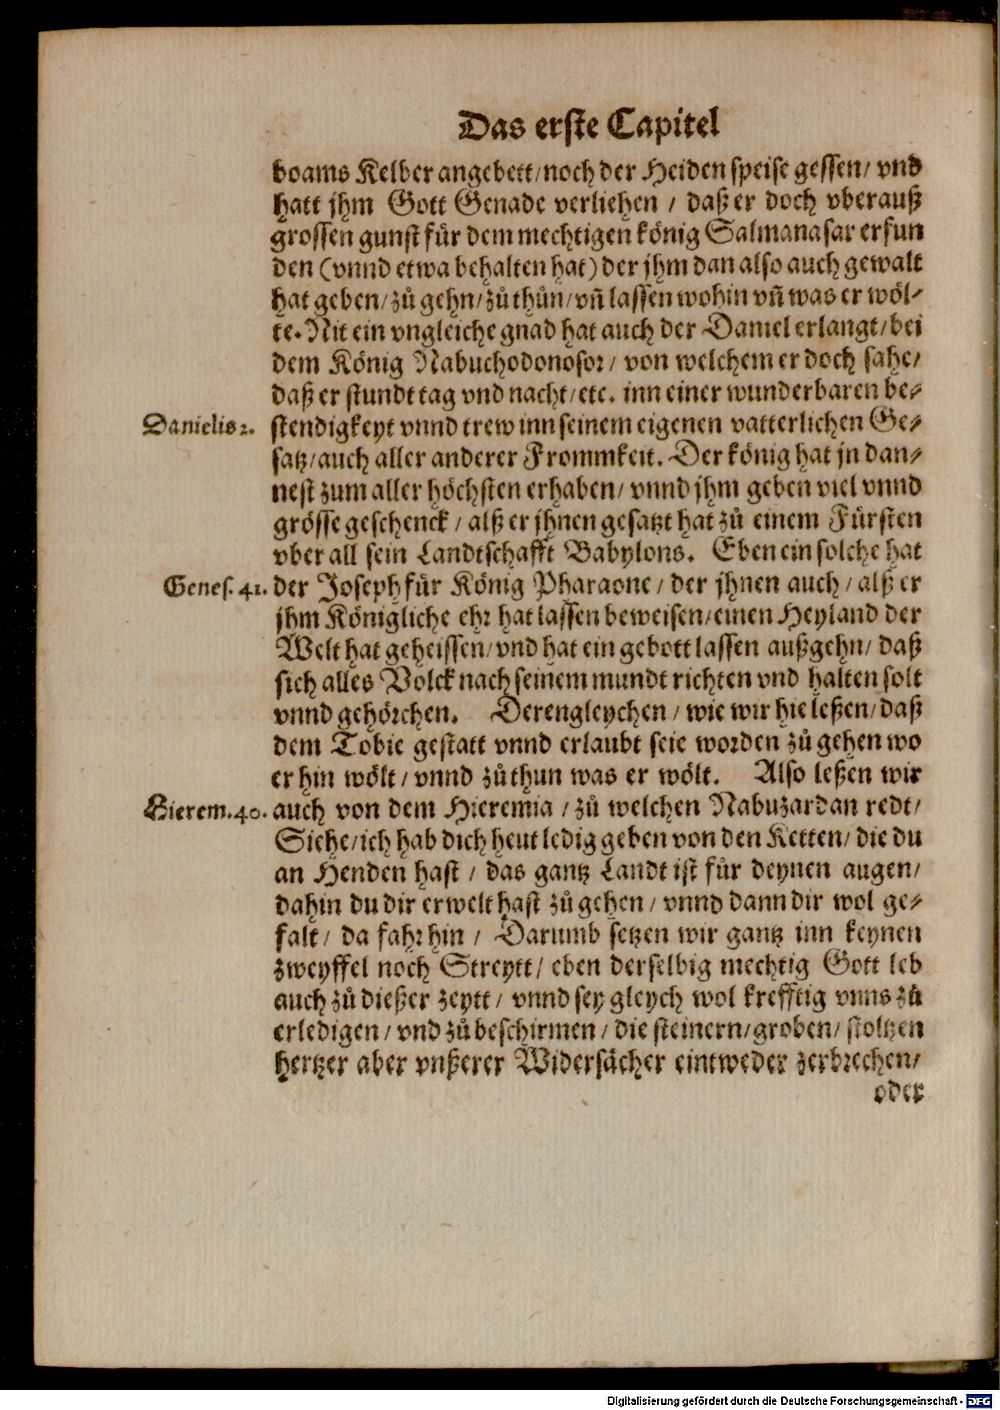 Das erste Capitel
boams Kelber angebett/noch der Heiden speise gessen/ vnd
hatt jhm Gott Genade verliehen / daß er doch vberauß
grossen gunst für dem mechtigen könig Salmanasar erfun
den (vnnd etwa behalten hat) der jhm dan also auch gewalt
hat geben/zů gehn/zů thůn/vñ lassen wohin vñ was er wöl-
te. Nit ein vngleiche gnad hat auch der Daniel erlangt/bei
dem König Nabuchodonosor/ von welchem er doch sahe/
daß er stundt tag vnd nacht/etc. inn einer wunderbaren be-
Danielis 2.
stendigkeyt vnnd trew inn seinem eigenen vatterlichen Ge-
satz/auch aller anderer Frommkeit. Der könig hat jn dan-
nest zum aller höchsten erhaben/ vnnd jhm geben viel vnnd
grösse geschenck / alß er jhnen gesatzt hat zů einem Fürsten
vber all sein Landtschafft Babylons. Eben ein solche hat
Genes. 41.
der Joseph für König Pharaone/ der jhnen auch / alß er
jhm Königliche ehr hat lassen beweisen/einen Heyland der
Welt hat geheissen/vnd hat ein gebott lassen außgehn/ daß
sich alles Volck nach seinem mundt richten vnd halten solt
vnnd gehörchen. Derengleychen / wie wir hie leßen/daß
dem Tobie gestatt vnnd erlaubt seie worden zů gehen wo
er hin wölt / vnnd zů thun was er wölt. Also leßen wir
Hierem. 40.
auch von dem Hieremia / zů welchen Nabuzardan redt/
Siehe/ich hab dich heut ledig geben von den Ketten/ die du
an Henden hast / das gantz Landt ist für deynen augen/
dahin du dir erwelt hast zů gehen / vnnd dann dir wol ge-
falt/ da fahr hin / Darumb setzen wir gantz inn keynen
zweyffel noch Streytt/ eben derselbig mechtig Gott leb
auch zů dießer zeytt / vnnd sey gleych wol krefftig vnns zů
erledigen / vnd zů beschirmen / die steinern/groben/ stoltzen
hertzer aber vnßerer Widersächer eintweder zerbrechen/
oder
Digitalisierung gefördert durch die Deutsche Forschungsgemeinschaft - DFG